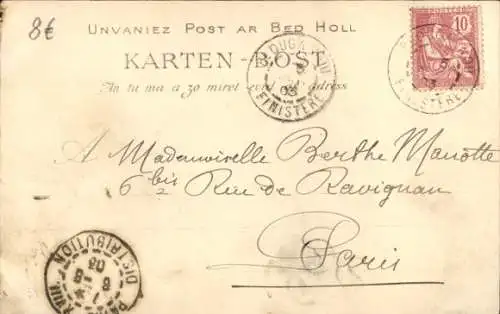 8€
UNVANIEZ POST AR BED HOLL
KARTEN-POST
An tu ma a zo miret evid adress
FINISTERE
03
10
FINISTERE
A Mademoiselle Berthe Mariotte
6 bis Rue de Ravignan
Paris
DISTRIBUTION
03